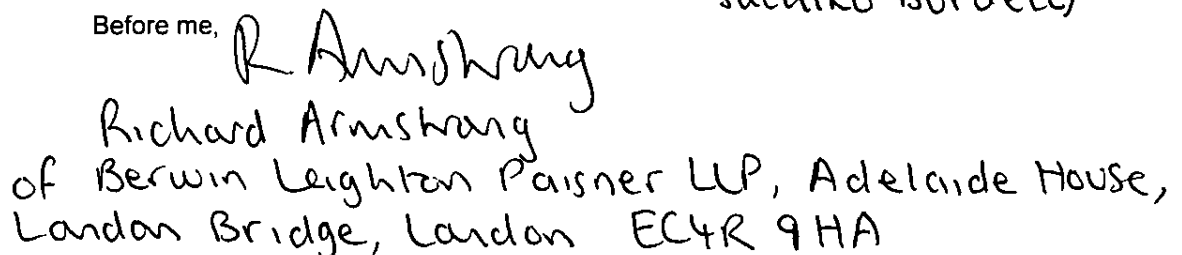 Before me, R Armstrong
Richard Armstrong
of Berwin Leighton Paisner LLP, Adelaide House,
London Bridge, London EC4R 9HA